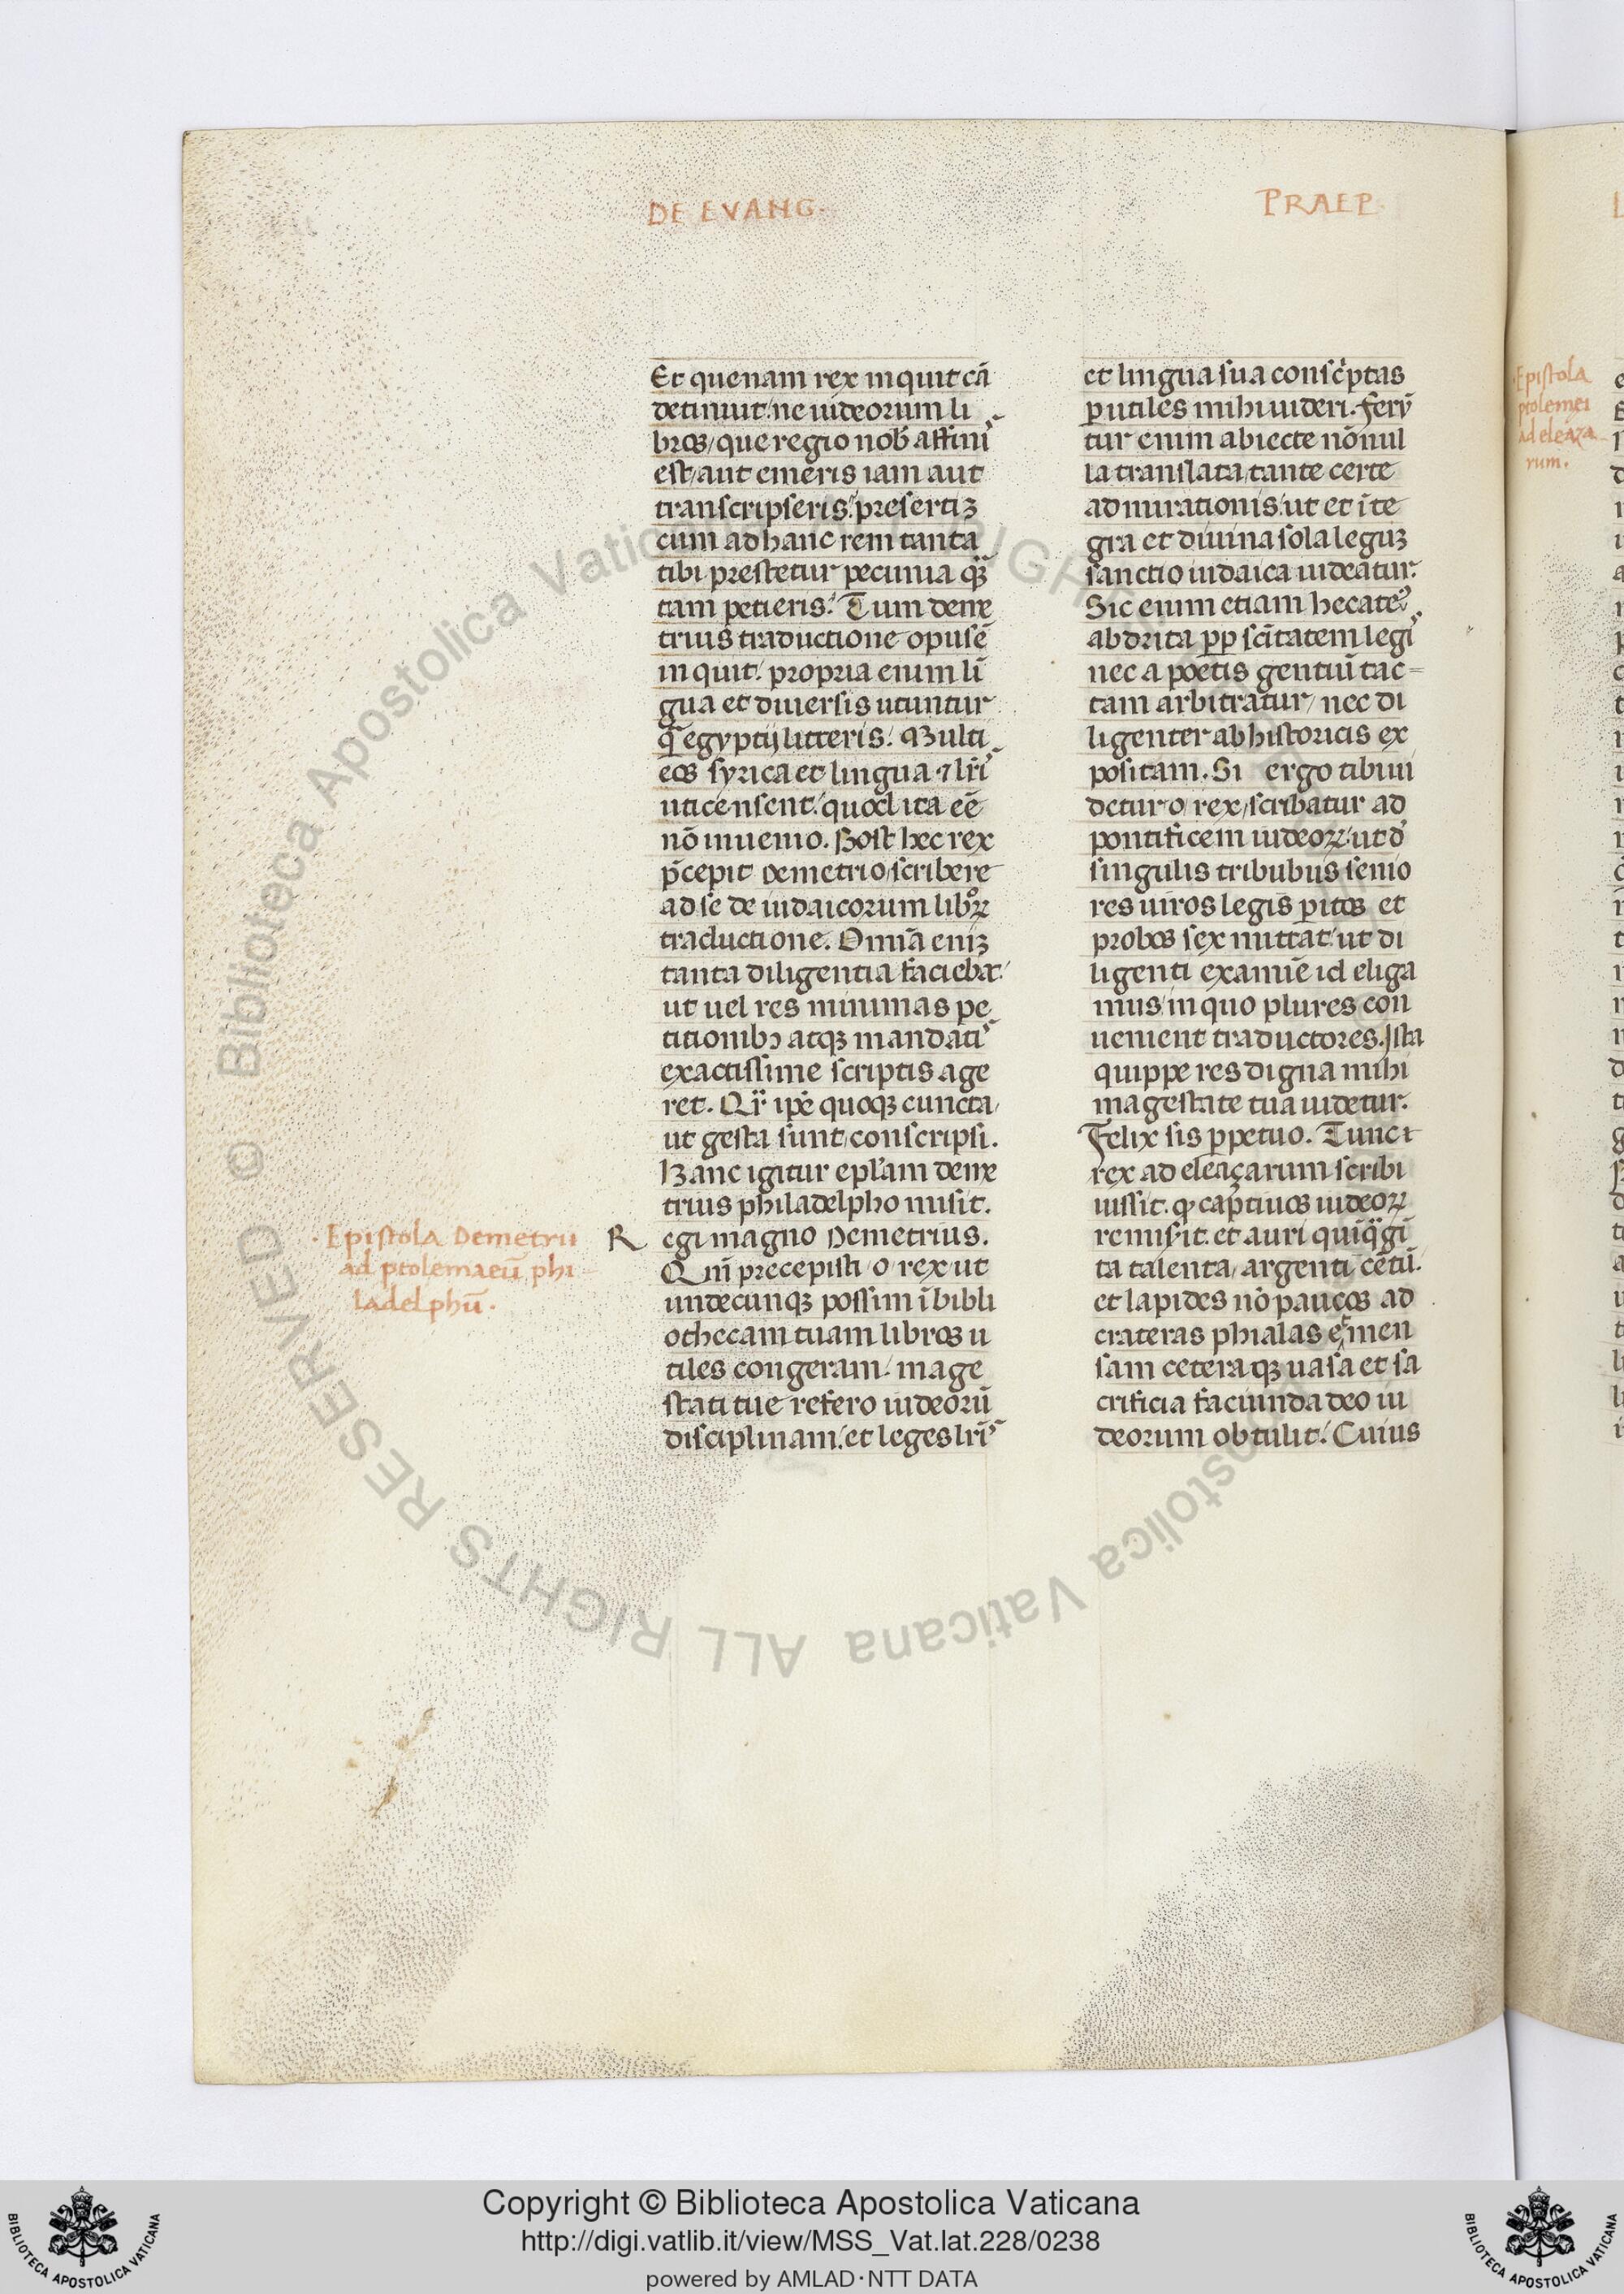 DE EVANG.
PRAEP.
Et quenam rex inquit cā
detinuit ne iudeorum li
bros, que regio nob affinis
est, aut emeris iam aut
transcripseris: presertiꝫ
cum ad hanc rem tanta
tibi prestetur pecunia qꝫ
tam petieris. Tum deme
trius traductione opus ē
inquit. propria enim lī
gua et diuersis utuntur
q̄ egyptij litteris. Multi
eos syrica et lingua ⁊ lr̄is
uti censent: quod ita eē
nō inuenio. Post hec rex
p̄cepit Demetrio, scribere
ad se de iudaicorum libꝝ
traductione. Omnia eniꝫ
tanta diligentia faciebat
ut uel res minimas pe
titionibꝫ atqꝫ mandatis
exactissime scriptis age
ret. Qr̄ ip̄e quoqꝫ cuncta,
ut gesta sunt, conscripsi.
Hanc igitur epl̄am deme
trius philadelpho misit.
· Epistola Demetrii
ad ptolemaeū phi
ladelphū ·
Regi magno Demetrius.
Qm̄ precepisti o rex ut
undecunqꝫ possim ī bibli
othecam tuam libros u
tiles congeram. mage
stati tue refero iudeorū
disciplinam. et leges lr̄is
et lingua sua consc̄ptas
ꝑutiles mihi uideri. feru̅
tur enim abiecte nōnul
la translata, tante certe
admirationis: ut et īte
gra et diuina sola leguꝫ
sanctio iudaica uideatur.
Sic enim etiam hecateꝰ
abdrita ꝓꝑ scītatem legis
nec a poetis gentiū tac=
tam arbitratur, nec di
ligenter ab historicis ex
positam. Si ergo tibi ui
detur o rex, scribatur ad
pontificem iudeoꝝ ut d̄
singulis tribubus senio
res uiros legis ꝑitos et
probos sex mittat: ut di
ligenti examiē id eliga
mus, in quo plures con
uenient traductores. Ista
quippe res digna mihi
magestate tua uidetur.
Felix sis ꝑpetuo. Tunc
rex ad eleaçarum scribi
iussit. ꝙ captiuos iudeoꝝ
remisit. et auri quīq̄gī
ta talenta, argenti cētū.
et lapides nō paucos ad
crateras phialas et men
sam ceteraqꝫ uasa et sa
crificia faciunda deo iu
deorum obtulit. Cuius
Epistola
ptolemei
ad eleaza
rum.
Copyright © Biblioteca Apostolica Vaticana
http://digi.vatlib.it/view/MSS_Vat.lat.228/0238
powered by AMLAD·NTT DATA
BIBLIOTECA APOSTOLICA VATICANA
BIBLIOTECA APOSTOLICA VATICANA